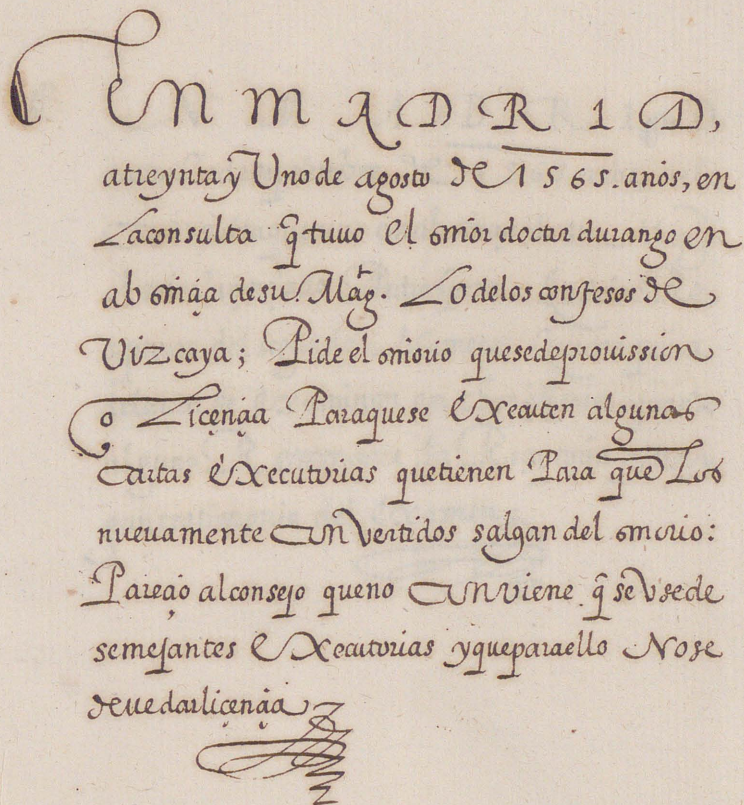 EN MADRID,
a treynta y Uno de agosto de 1565. anos, en
La consulta q̄ tuvo el señor doctor durango en
absençia de su Mag.t Lo de los confesos de
Vizcaya; Pide el señorio que se de provission
o Liçençia Para que se Executen algunas
Cartas Executorias que tienen Para que Los
nuevamente convertidos salgan del señorio:
Pareçio al consejo que no conviene q̄ se Vse de
semejantes Executorias y que para ello No se
deve dar liçençia